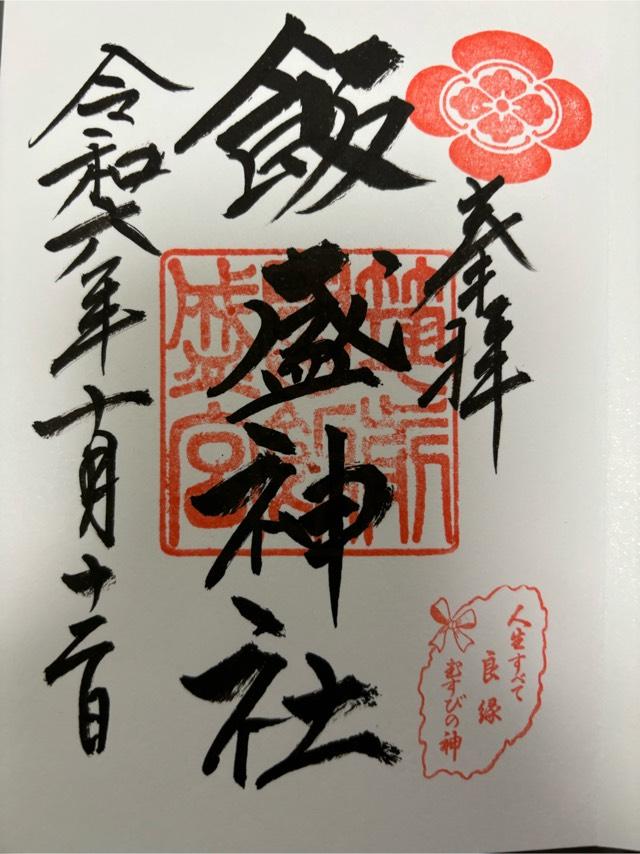 奉拝
飯盛神社
筑前
國飯
盛宮
令和六年十月十二日
人生すべて
良縁
むすびの神